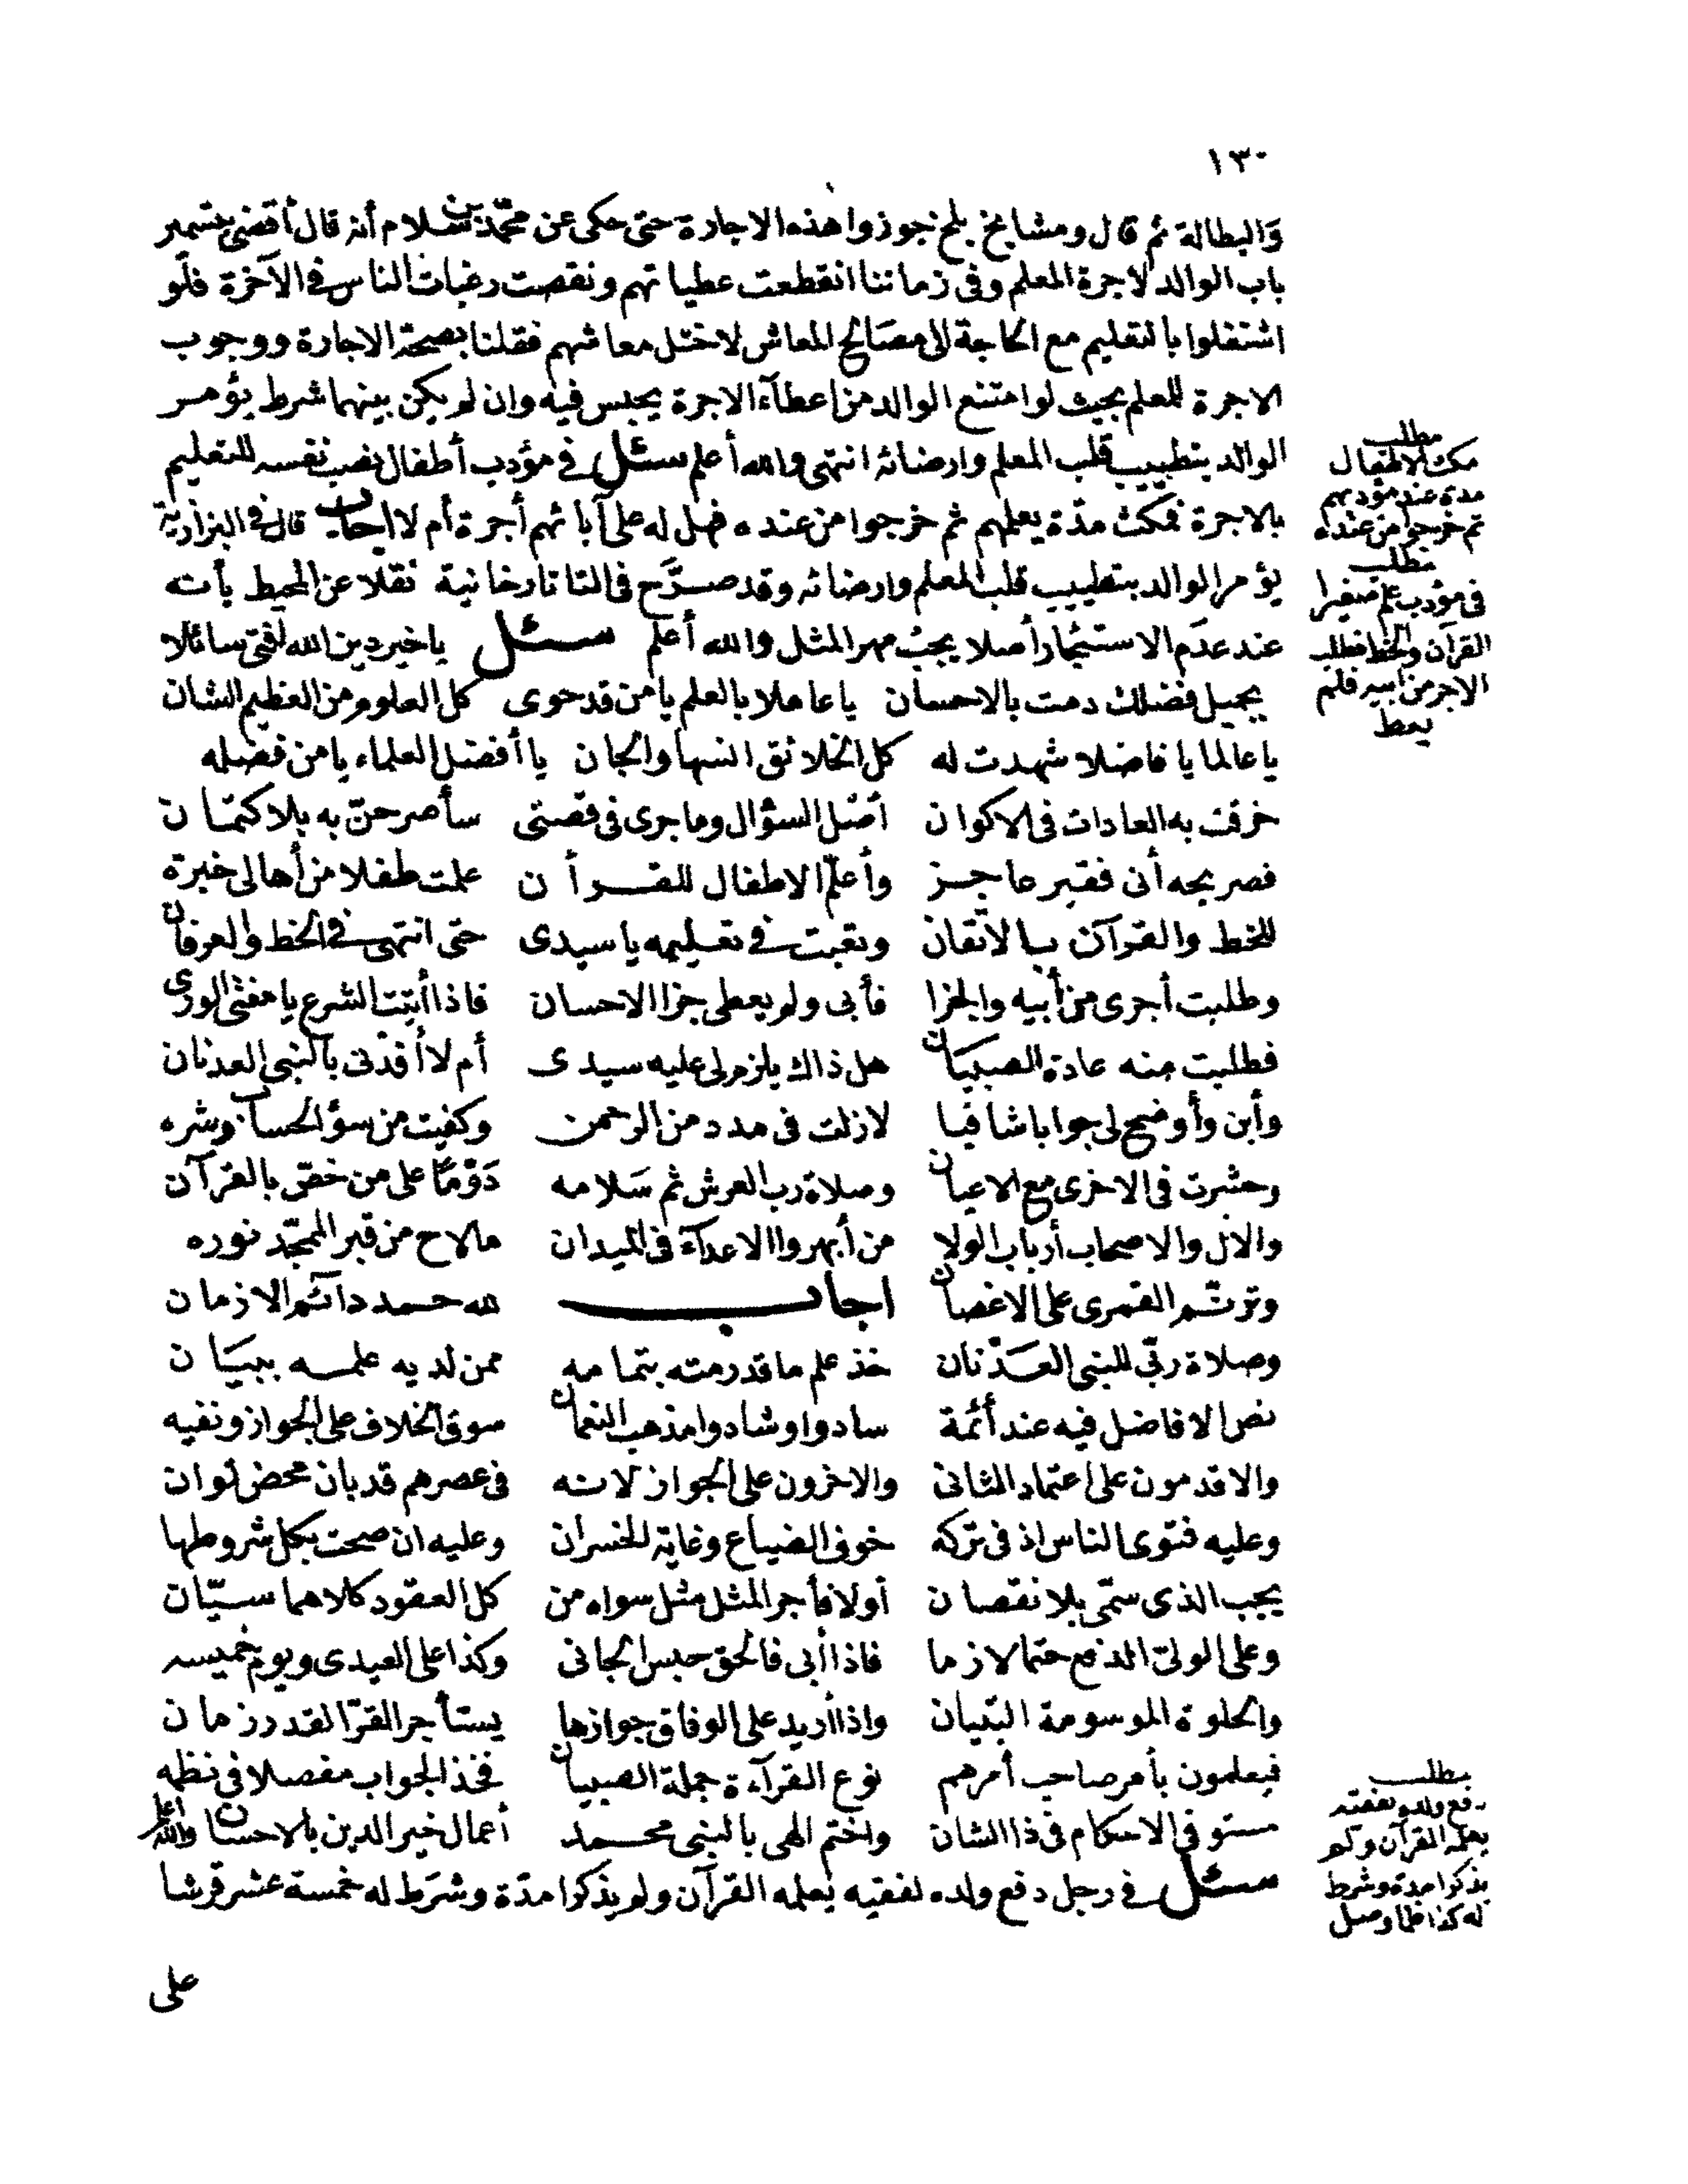 ١٣٠
والبطالة ثم قال ومشايخ بلخ جوزوا هذه الاجارة حتى حكى عن محمد بن سلام أنه قال أقضى بتسمير
باب الوالد لاجرة المعلم وفى زماننا انقطعت عطياتهم ونقصت رغبات الناس فى الآخرة فلو
اشتغلوا بالتعليم مع الحاجة الى مصالح المعاش لاختل معاشهم فقلنا بصحة الاجارة ووجوب
الاجرة للمعلم بحيث لو امتنع الوالد من اعطآء الاجرة يحبس فيه وان لم يكن بينهما شرط يؤمر
الوالد بتطييب قلب المعلم وارضائه انتهى والله أعلم سئل فى مؤدب أطفال نصب نفسه للتعليم
بالاجرة فمكث مدّة يعلمهم ثم خرجوا من عنده فهل له على آبائهم أجرة أم لا اجاب قال فى البزازية
يؤمر الوالد بتطييب قلب المعلم وارضائه وقد صرّح فى التاتارخانية نقلا عن المحيط بأنه
عند عدم الاستئجار أصلا يجب مهر المثل والله أعلم سئل ياخير دين الله لفتى سائلا
بجميل فضلك دمت بالاحسان ياعاملا بالعلم يا من قد حوى كل العلوم من العظيم الشان
ياعالما يا فاضلا شهدت له كل الخلائق انسها والجان يا أفضل العلماء يا من فضله
خرقت به العادات فى الاكوان أصل السؤال وما جرى فى قصتى سأصرحنّ به بلا كتمان
فصريحه أنى فقير عاجز وأعلّم الاطفال للقرأن علمت طفلا من أهالى خبرة
للخط والقرآن بالاتقان وتعبت فى تعليمه يا سيدى حتى انتهى فى الخط والعرفان
وطلبت أجرى من أبيه والجزا فأبى ولم يعطى جزا الاحسان فاذا أتيت الشرع يا مفتى الورى
فطلبت منه عادة الصبيان هل ذاك يلزم لى عليه سيدى أم لا أفدنى بالنبى العدنان
وأبن وأوضح لى جوابا شافيا لا زلت فى مدد من الرحمن وكفيت من سؤ الحساب وشره
وحشرت فى الاخرى مع الاعيان وصلاة رب العرش ثم سلامه دوما على من خص بالقرآن
والال والاصحاب أرباب الولا من أبهروا الاعدآء فى الميدان ما لاح من قبر الممجّد نوره
وترنّم القمرى على الاغصان اجاب لله حمد دآئم الازمان
وصلاة ربّى للنبى العدنان خذ علم ما قد رمته بتمامه ممن لديه علمه ببيان
نص الافاضل فيه عند أئمة سادوا وشادوا مذهب النعمان سوق الخلاف على الجواز ونفيه
والاقدمون على اعتماد الثانى والاخرون على الجواز لانه فى عصرهم قد بان محض توان
وعليه فتوى الناس اذ فى تركه خوف الضياع وغاية للخسران وعليه ان صحت بكل شروطها
يجب الذى سمّى بلا نقصان أولا فأجر المثل مثل سواه من كل العقود كلاهما سيّان
وعلى الولىّ الدفع حتما لازما فاذا أبى فالحق حبس الجانى وكذا على العيدى ويوم خميسه
والحلوة الموسومة التبيان واذا أريد على الوفاق جوازها يستأجر القرّا لقدر زمان
فيعلمون بأمر صاحب أمرهم نوع القرآءة جملة الصبيان فخذ الجواب مفصلا فى نظمه
مستوفى الاحكام فى ذا الشان واختم الهى بالنبى محمد أعمال خير الدين بالاحسان والله أعلم
سئل فى رجل دفع ولده لفقيه يعلمه القرآن ولم يذكرا مدّة وشرط له خمسة عشر قرشا
على
مطلب
مكث الاطفال
مدة عند مؤدبهم
ثم خرجوا من عنده
مطلب
فى مؤدب علم صغيرا
القرآن والخط فطلب
الاجر من أبيه فلم
يعط
مطلب
دفع ولده لفقيه
يعلمه القرآن ولم
يذكرا مدة وشرط
له كذا فلما وصل